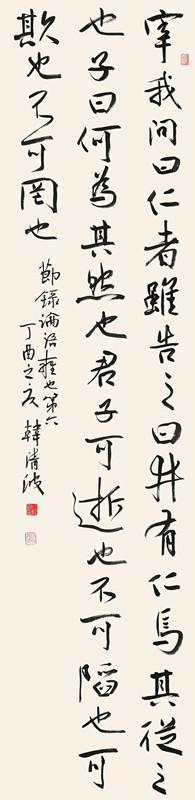 宰我问曰仁者雖告之曰井有仁焉其従之
也子曰何為其然也君子可逝也不可陷也可
欺也不可罔也
節録論语雍也第六
丁酉之夜 韓清波